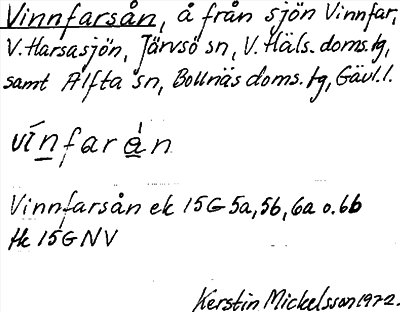 Vinnfarsån, å från sjön Vinnfar,
V. Harsasjön, Järvsö sn, V. Häls. doms. tg,
samt Alfta sn, Bollnäs doms. tg, Gävl. l.
vínfarán
Vinnfarsån ek 15G 5a, 5b, 6a o. 6b
tk 15G NV
Kerstin Mickelsson 1972.